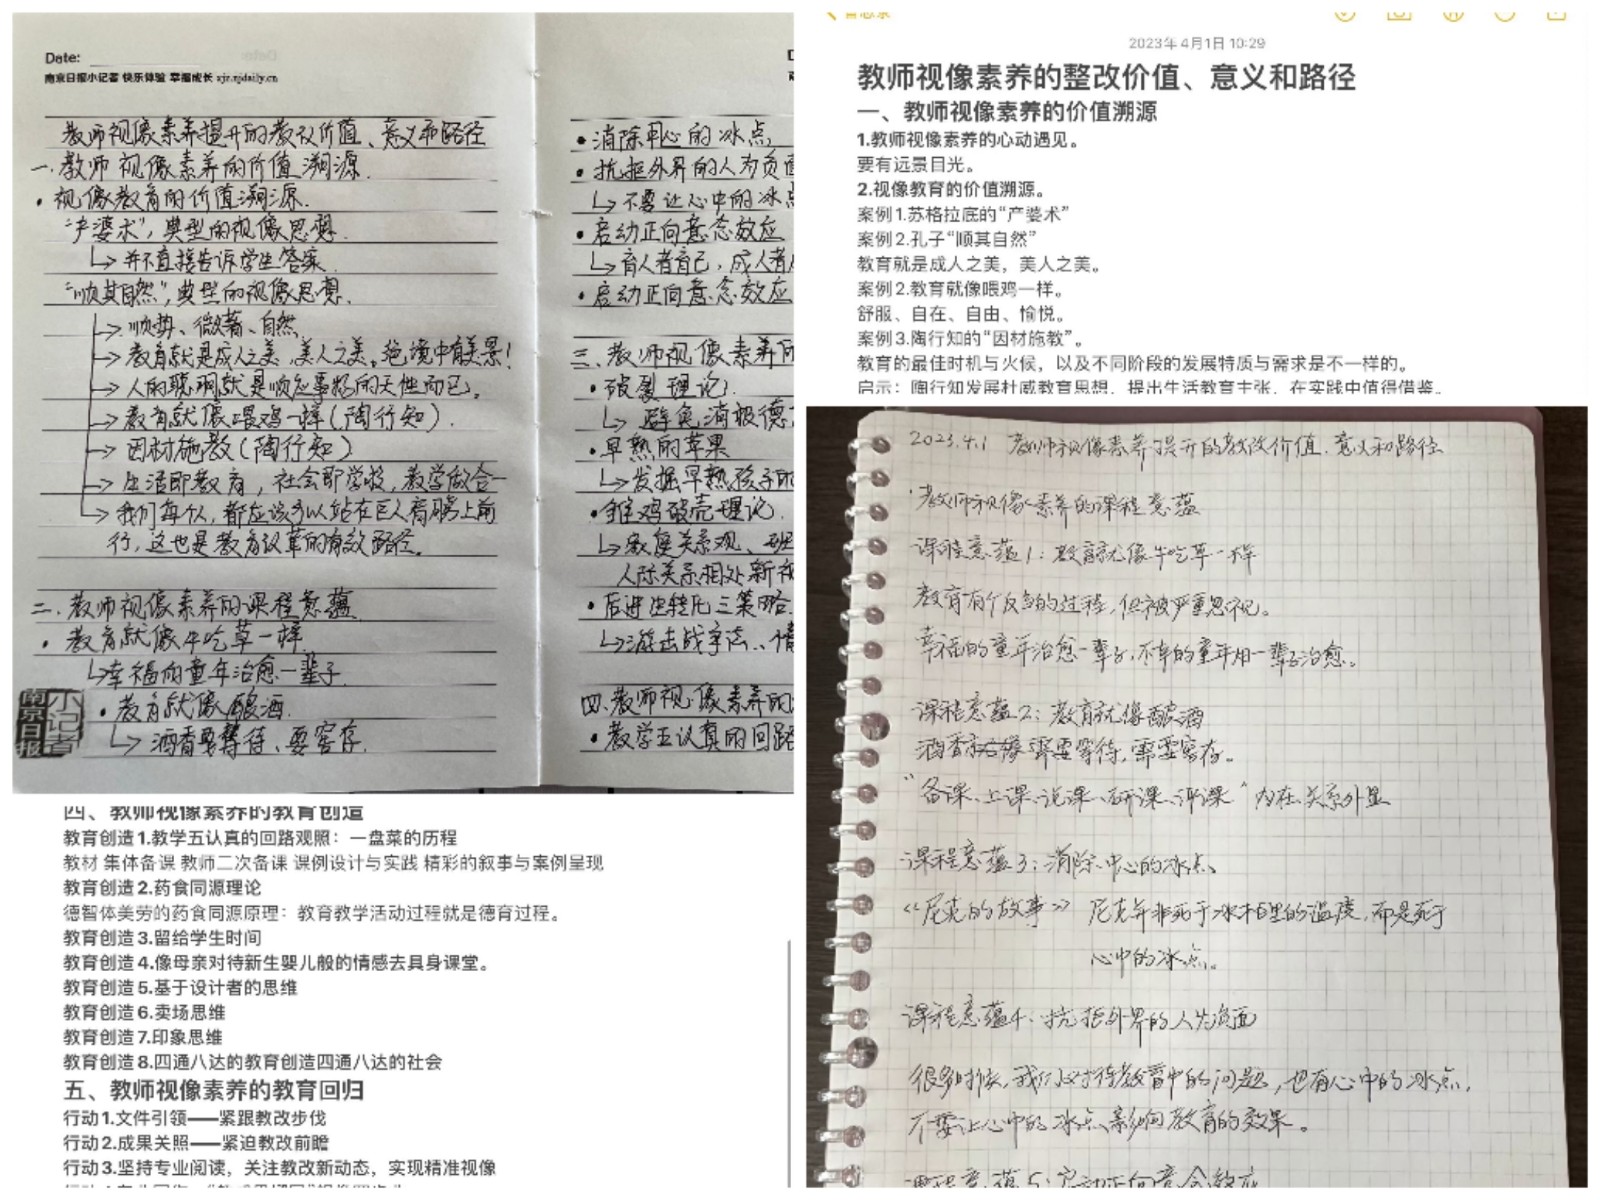 Date:
南京日报小记者 快乐体验 幸福成长 xjz.njdaily.cn
教师视像素养提升的教改价值、意义和路径
一.教师视像素养的价值溯源.
• 视像教育的价值溯源.
“产婆术”,典型的视像思想.
↳并不直接告诉学生答案.
“顺其自然”,典型的视像思想.
→顺势、微著、自然.
→教育就是成人之美,美人之美。绝境中有美景!
→人的聪明就是顺应事物的天性而已。
→教育就像喂鸡一样(陶行知).
→因材施教(陶行知)
→生活即教育,社会即学校,教学做合一
→我们每个人,都应该可以站在巨人肩膀上前
行,这也是教育改革的有效路径。
二.教师视像素养的课程意蕴.
• 教育就像牛吃草一样.
↳幸福的童年治愈一辈子.
• 教育就像酿酒.
↳酒香要等待、要窖存.
南京日报
小记者
• 消除中心的冰点
• 抗拒外界的人为负面
↳不要让心中的冰点
• 启动正向意念效应
↳育人者育己,成人者
• 启动正向意念效应
三.教师视像素养的
• 破裂理论.
↳避免消极德
• 早熟的苹果
↳发掘早熟孩子的
• 雏鸡破壳理论.
↳家庭关系观、班
人际关系相处新视
• 后进生转化三策略.
↳游击战争法、情
四.教师视像素养的
• 教学五认真的回路
2023年4月1日 10:29
教师视像素养的整改价值、意义和路径
一、教师视像素养的价值溯源
1.教师视像素养的心动遇见。
要有远景目光。
2.视像教育的价值溯源。
案例1.苏格拉底的“产婆术”
案例2.孔子“顺其自然”
教育就是成人之美，美人之美。
案例2.教育就像喂鸡一样。
舒服、自在、自由、愉悦。
案例3.陶行知的“因材施教”。
教育的最佳时机与火候，以及不同阶段的发展特质与需求是不一样的。
启示：陶行知发展杜威教育思想，提出生活教育主张，在实践中值得借鉴。
四、教师视像素养的教育创造
教育创造1.教学五认真的回路观照：一盘菜的历程
教材 集体备课 教师二次备课 课例设计与实践 精彩的叙事与案例呈现
教育创造2.药食同源理论
德智体美劳的药食同源原理：教育教学活动过程就是德育过程。
教育创造3.留给学生时间
教育创造4.像母亲对待新生婴儿般的情感去具身课堂。
教育创造5.基于设计者的思维
教育创造6.卖场思维
教育创造7.印象思维
教育创造8.四通八达的教育创造四通八达的社会
五、教师视像素养的教育回归
行动1.文件引领——紧跟教改步伐
行动2.成果关照——紧迫教改前瞻
行动3.坚持专业阅读，关注教改新动态，实现精准视像
2023.4.1 教师视像素养提升的教改价值.意义和路径
·教师视像素养的课程意蕴
课程意蕴1：教育就像牛吃草一样
教育有个反刍的过程,但被严重忘记。
幸福的童年治愈一辈子,不幸的童年用一辈子治愈。
课程意蕴2：教育就像酿酒
酒香 需要等待,需要窖存。
“备课、上课、说课、研课、评课”内在关系外显
课程意蕴3：消除中心的冰点
《尼克的故事》 尼克并非死于冰柜里的温度,而是死于
心中的冰点。
课程意蕴4：抗拒外界的人为负面
很多时候,我们对待教育中的问题,也有心中的冰点,
不要让心中的冰点影响教育的效果。
课程意蕴5：启动正向意念效应